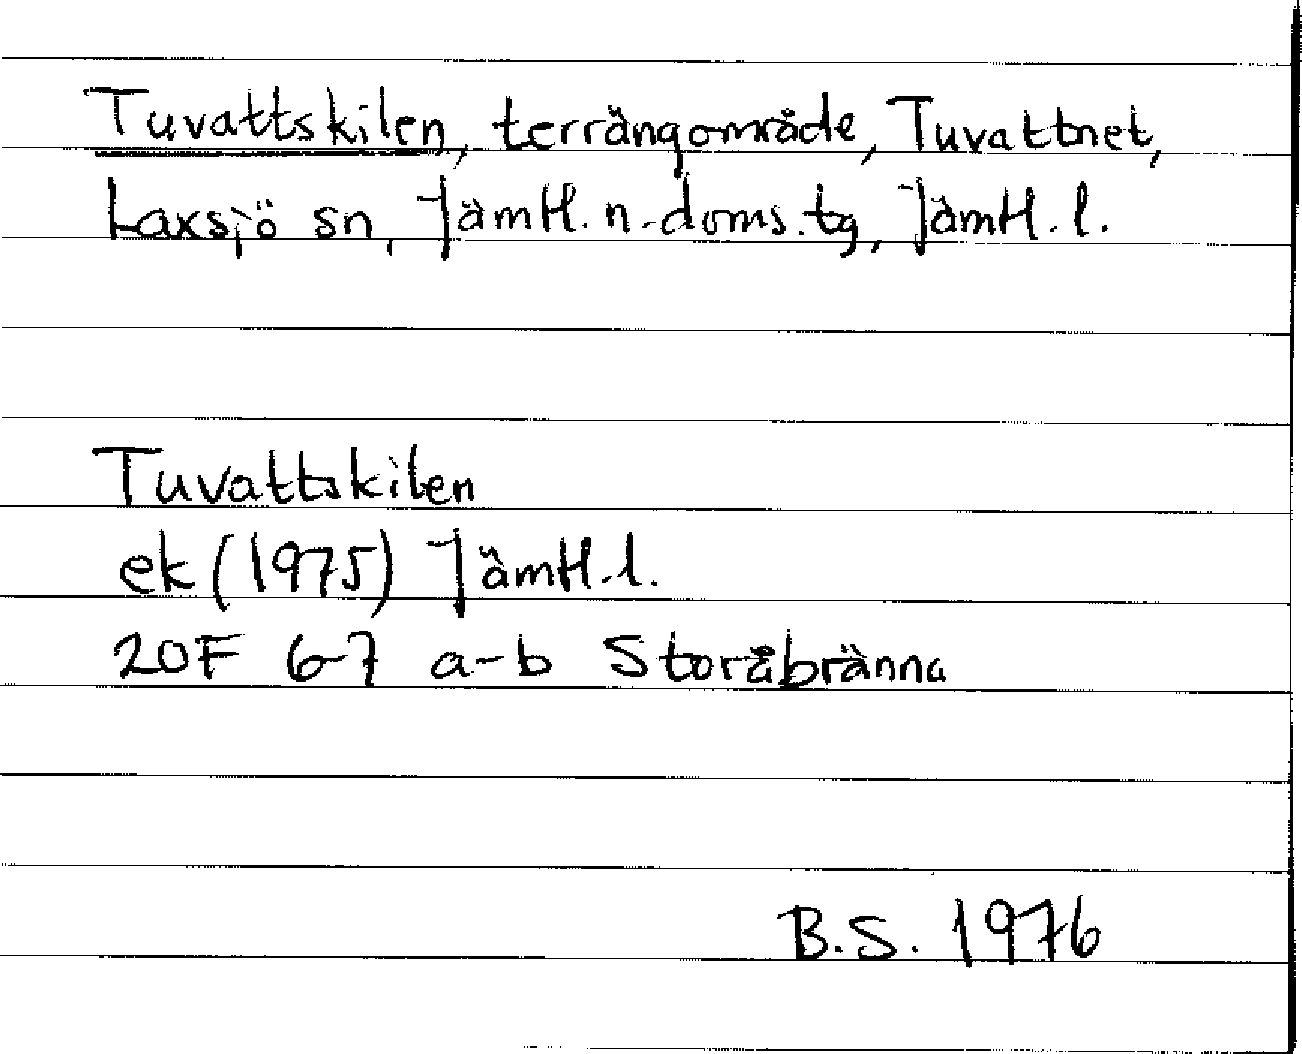 Tuvattskilen, terrängområde, Tuvattnet,
Laxsjö sn, Jämtl. n. doms. tg, Jämtl. l.
Tuvattskilen
ek (1975) Jämtl. l.
20F 6-7 a-b Storåbränna
B.S. 1976